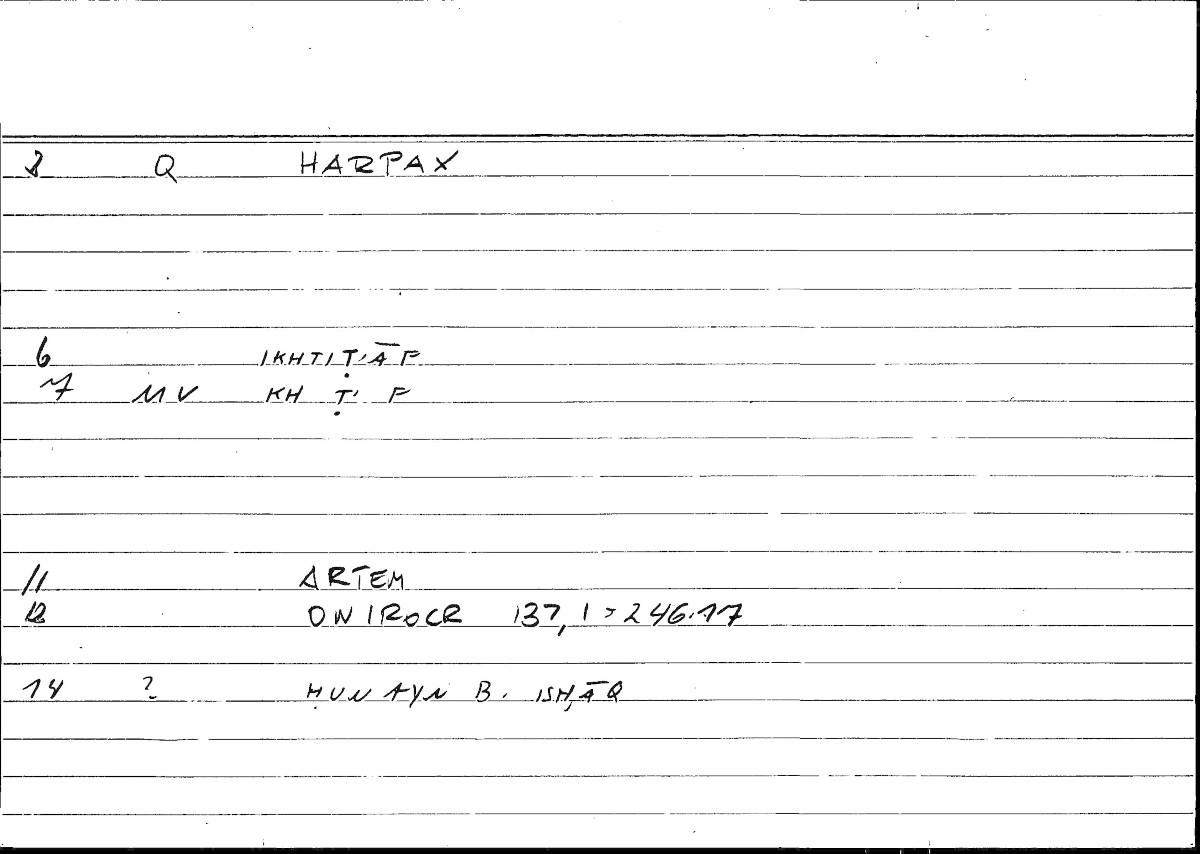 3 Q HARPAX
6 IKHTIṬ'ĀF
7 MV KH Ṭ' F
11 ARTEM
12 ONIROCR 137,1 > 246.17
14 ? ḤUNAYN B. ISḤĀQ